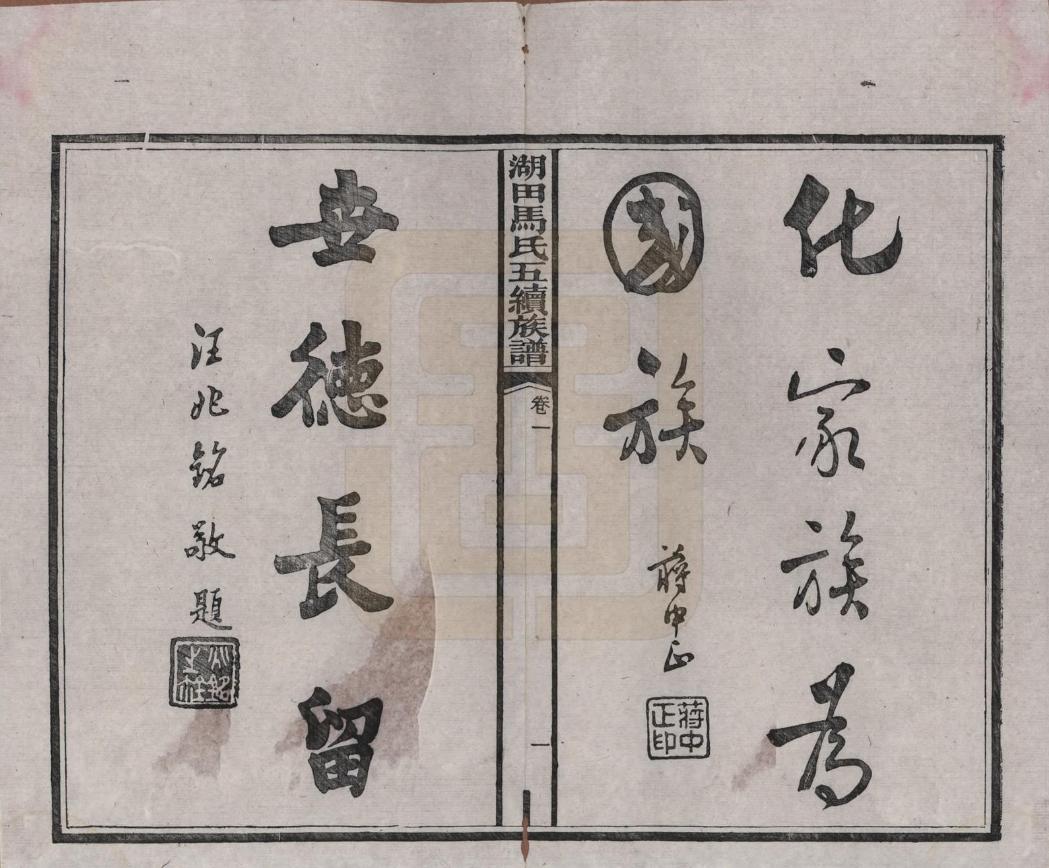 化家族為
國族
蔣中正
蔣中正印
湖田馬氏五續族譜
卷一
一
世德長留
汪兆銘敬題